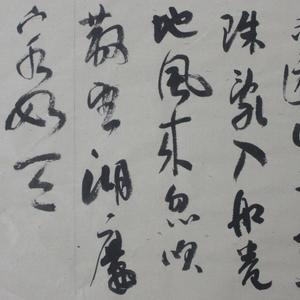 珠亂入船卷
地風來忽吹
散望湖樓
下水如天